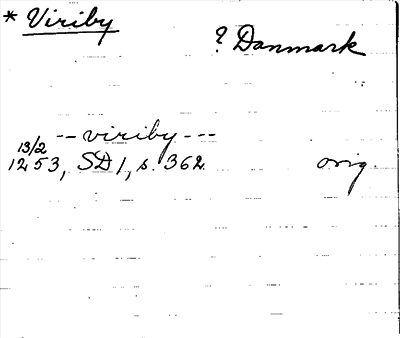 * Viriby
? Danmark
-- viriby ---
13/2
1253, SD 1, s. 362. orig.